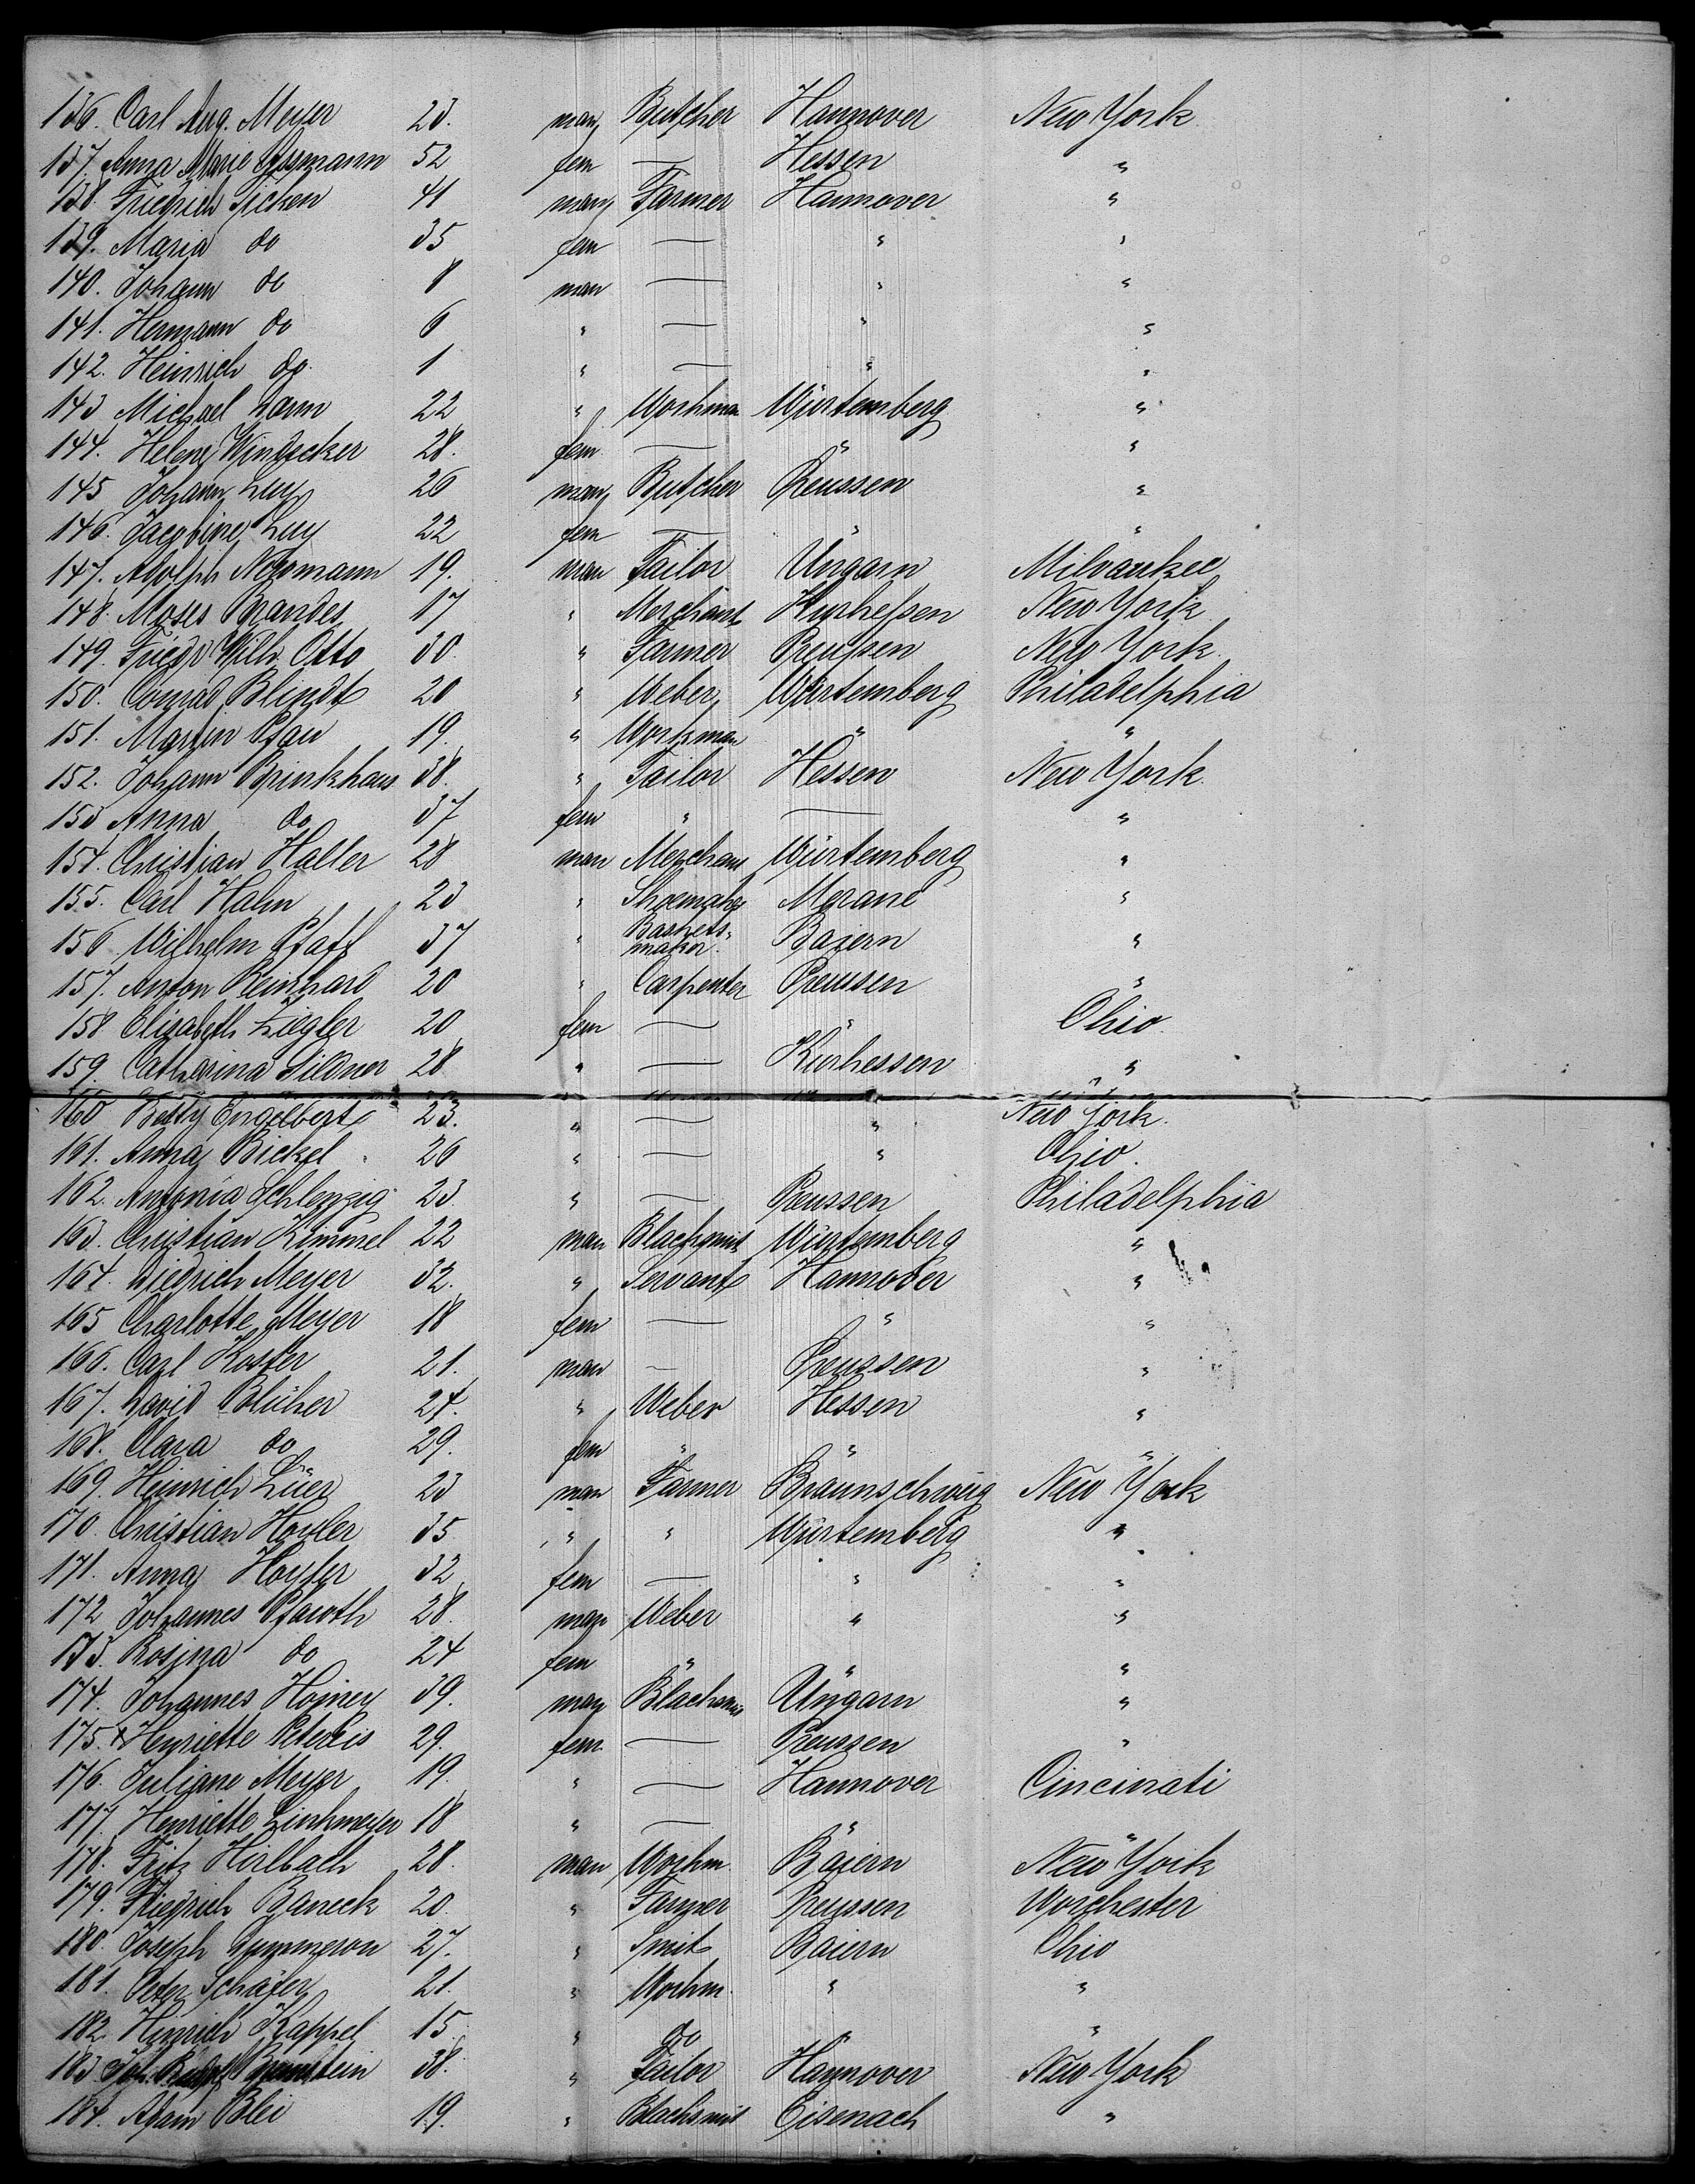 136. Carl Aug. Meyer 23. man Butcher Hannover New York
137. Anna Marie 52 fem — Hessen "
138. Friedrich Ficken 41 man Farmer Hannover "
139. Maria do 35 fem — " "
140. Johann do 8 man — " "
141. Hermann do 6 " — " "
142. Heinrich do 1 " — " "
143 Michael 22 " Workman Würtemberg "
144. Helene Windecker 28. fem — " "
145 Johann Luy 26 man Butcher Preussen "
146. Jacobine Luy 22 fem — " "
147. Adolph 19. man Tailor Ungarn Milvaukee
148. Moses Brandes 17 " Merchant Kurhessen New York
149. Friedr Wilh. Otto 30 " Farmer Preussen New York.
150. Conrad Blindt 20 " Weber Würtemberg Philadelphia
151. Martin Pfau 19. " Workman " "
152. Johann Brinkhaus 38. " Tailor Hessen New York.
153 Anna do 37 fem " — "
154. Christian Haller 28 man Merchant Würtemberg "
155. Carl Hahn 23 " Shoemaker Merane "
156 Wilhelm Pfaff 37 " Baskets-maker. Baiern "
157. Anton Reinhard 20 " Carpenter Preussen "
158 Elizabeth Ziegler 20 fem — " Ohio.
159. Catharina Sildner 28 " — Kurhessen "
160 Betty Engelbert 23. " — " New York.
161. Anna Bickel 26 " — " Ohio.
162. Antonia Schlenzig 23 " — Preussen Philadelphia
163. Christian Kimmel 22 man Blacksmit Würtemberg "
164. Diedrich Meyer 32. " Servant Hannover "
165 Charlotte Meyer 18 fem — " "
166. Carl Koster 21. man — Preussen "
167. David Blüher 24. " Weber Hessen "
168. Clara do 29. fem " " "
169. Heinrich Lüer 23 man Farmer Braunschweig New York
170. Christian Hoyler 35 " " Würtemberg "
171. Anna Hoyler 32 fem — " "
172 Johannes Pfauth 28. man Weber " "
173. Rosina do 24 fem " " "
174. Johannes 39. man Blacksmit Ungarn "
175. x Henriette 29. fem. — Preussen "
176. Juliane Meyer 19. " — Hannover Cincinati
177. Henriette Linkmeyer 18 " — " "
178. Fritz Hirlbach 28. man Workm. Baiern New York
179. Friedrich Baneck 20. " Farmer Preussen Worchester
180. Joseph 27. " Smit Baiern Ohio
181. Peter Schäfer 21. " Workm. " "
182. Hinrich Kappel 15. " do " "
183 Joh. 38. " Tailor Hannover New York
184. Adam Blei 19. " Blacksmit Eisenach "